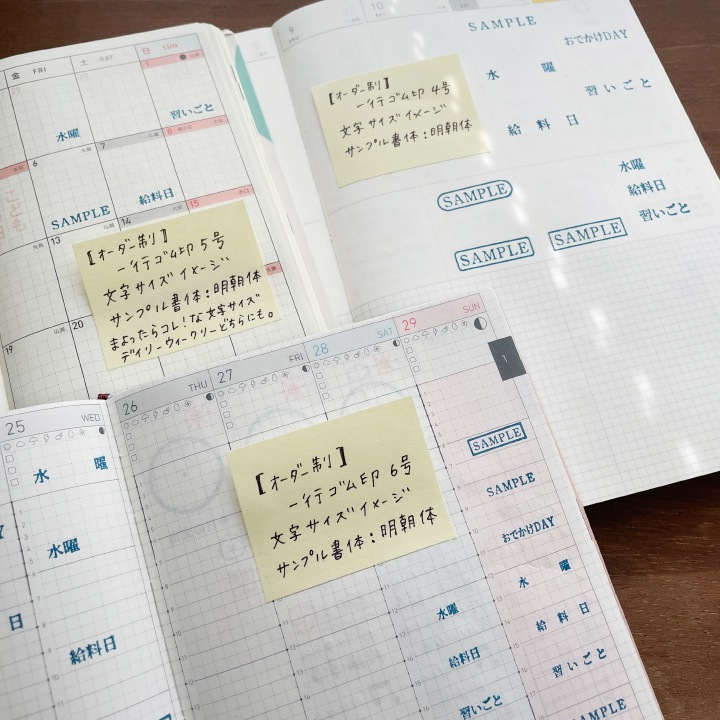 金 FRI
土 SAT
日 SUN
1
水曜
習いごと
6
7
8
SAMPLE
給料日
13
14
15
19
20
【オーダー制】
一行ゴム印5号
文字サイズイメージ
サンプル書体：明朝体
まよったらコレ！な文字サイズ
デイリーウィークリーどちらにも。
9
10
SAMPLE
おでかけDAY
水 曜
習いごと
給料日
【オーダー制】
一行ゴム印4号
文字サイズイメージ
サンプル書体：明朝体
水曜
給料日
習いごと
SAMPLE
SAMPLE
SAMPLE
25 WED
26 THU
27 FRI
28 SAT
29 SUN
1
水 曜
水曜
日
給料日
【オーダー制】
一行ゴム印6号
文字サイズイメージ
サンプル書体：明朝体
水曜
給料日
習いごと
SAMPLE
SAMPLE
おでかけDAY
水 曜
給料日
習いごと
SAMPLE